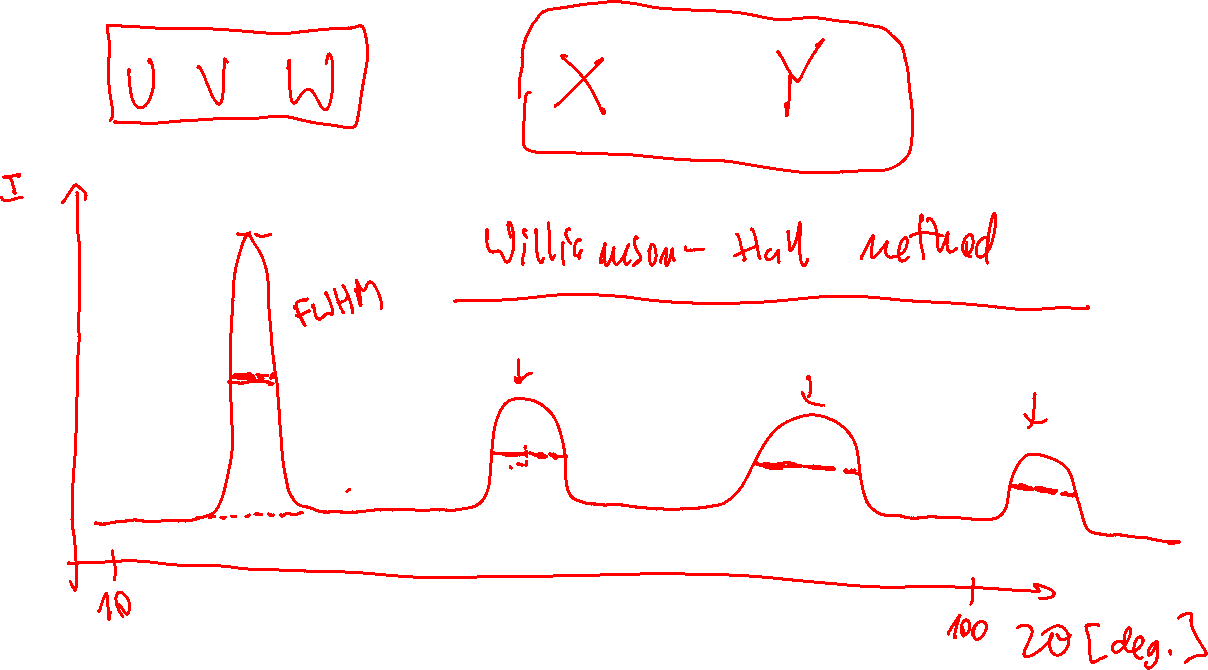 U V W
X Y
I
Williamson-Hall method
FWHM
10
100
2θ [deg.]